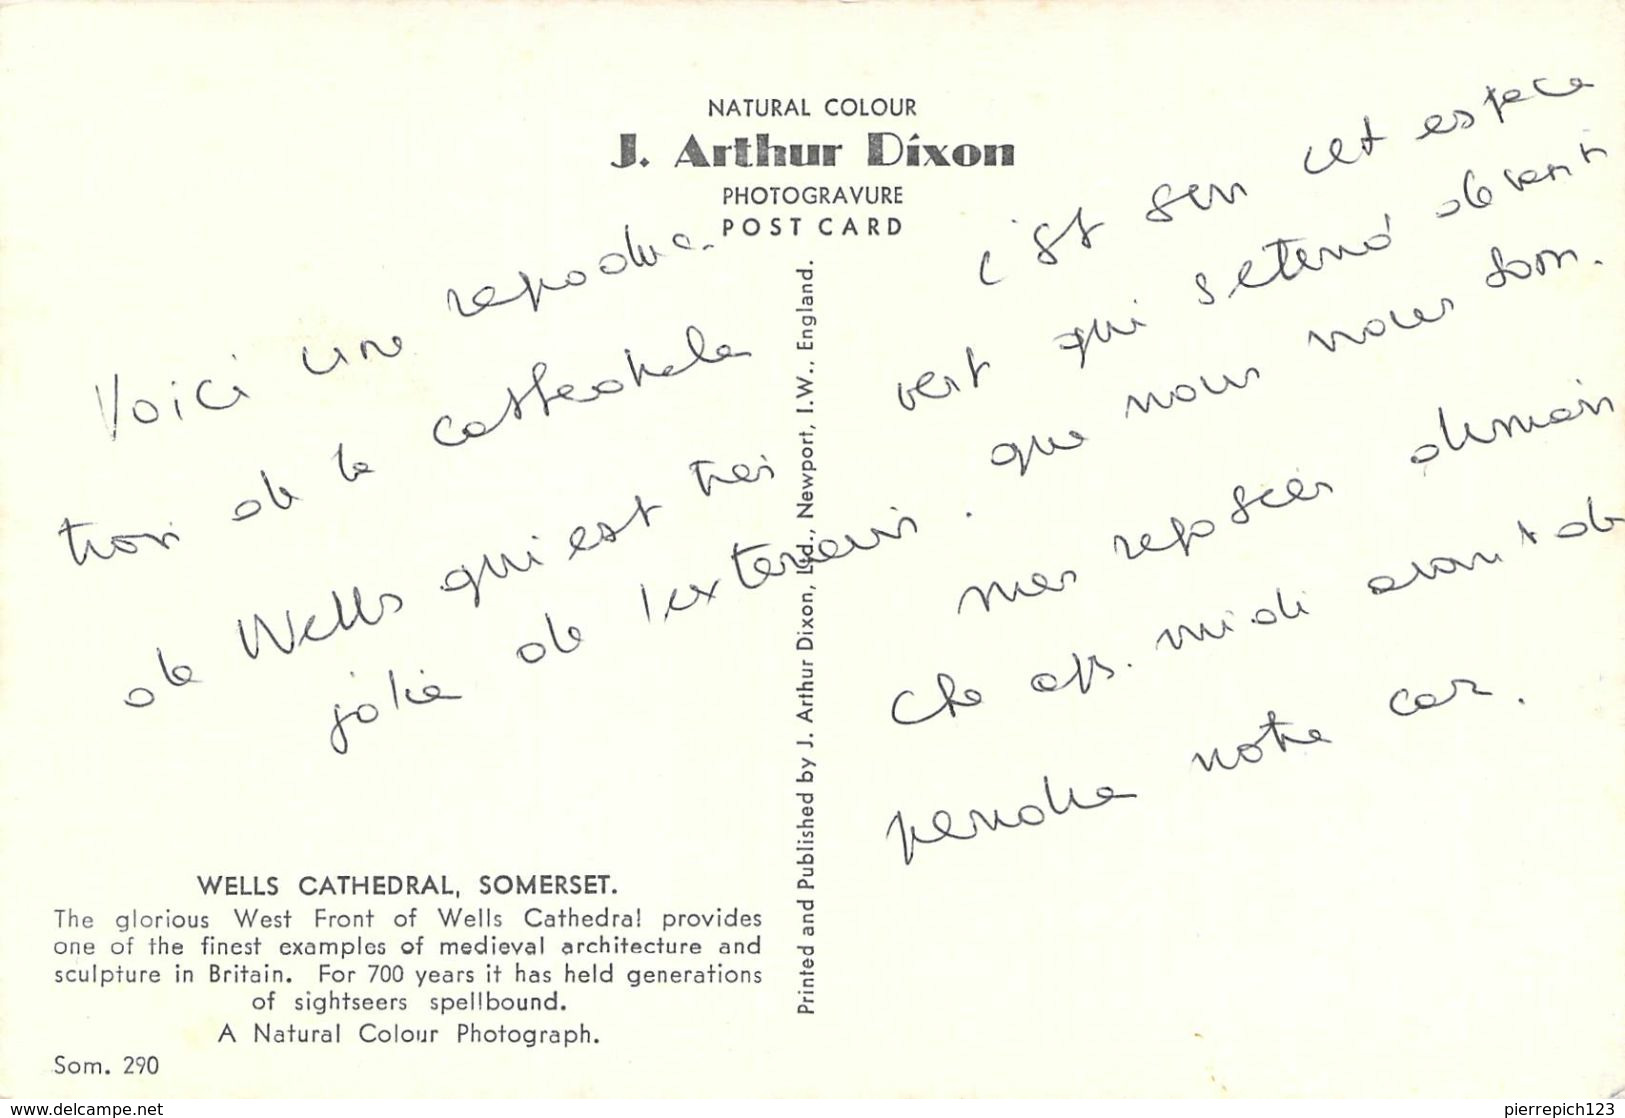 NATURAL COLOUR
J. Arthur Dixon
PHOTOGRAVURE
POST CARD
Voici une reproduc-
tion de la cathedrale
de Wells qui est tres
jolie de l'exterieur.
c'est sur cet espace
vert qui s'etend devant
que nous nous som-
mes reposées diman
che aps. midi avant de
prendre notre car.
Printed and Published by J. Arthur Dixon, Ltd., Newport, I.W., England.
WELLS CATHEDRAL, SOMERSET.
The glorious West Front of Wells Cathedral provides
one of the finest examples of medieval architecture and
sculpture in Britain. For 700 years it has held generations
of sightseers spellbound.
A Natural Colour Photograph.
Som. 290
www.delcampe.net
pierrepich123